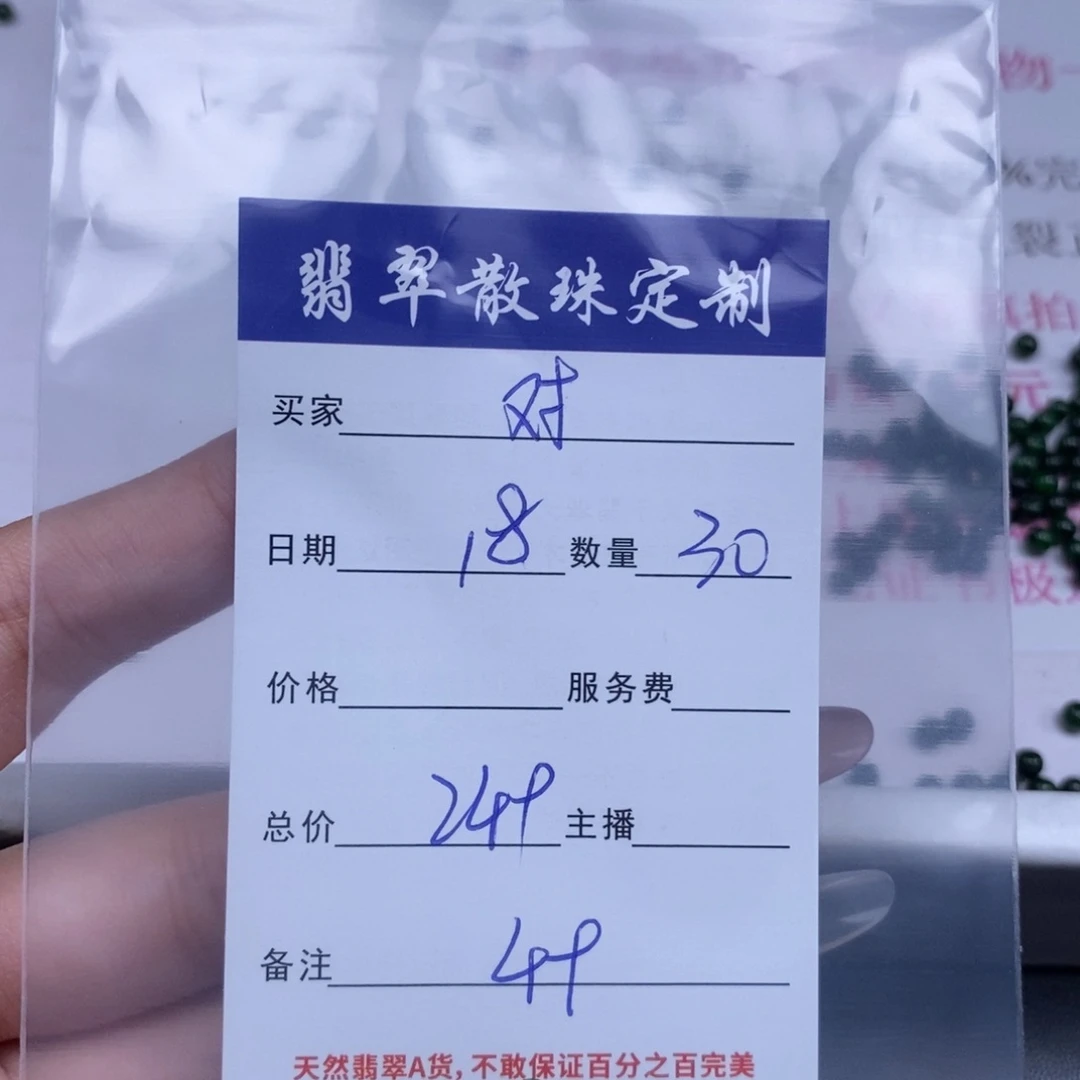 翡翠散珠定制
买家 对
日期 18 数量 30
价格 服务费
总价 249 主播
备注 49
天然翡翠A货,不敢保证百分之百完美
物一
%完
裂正
拍
元
极